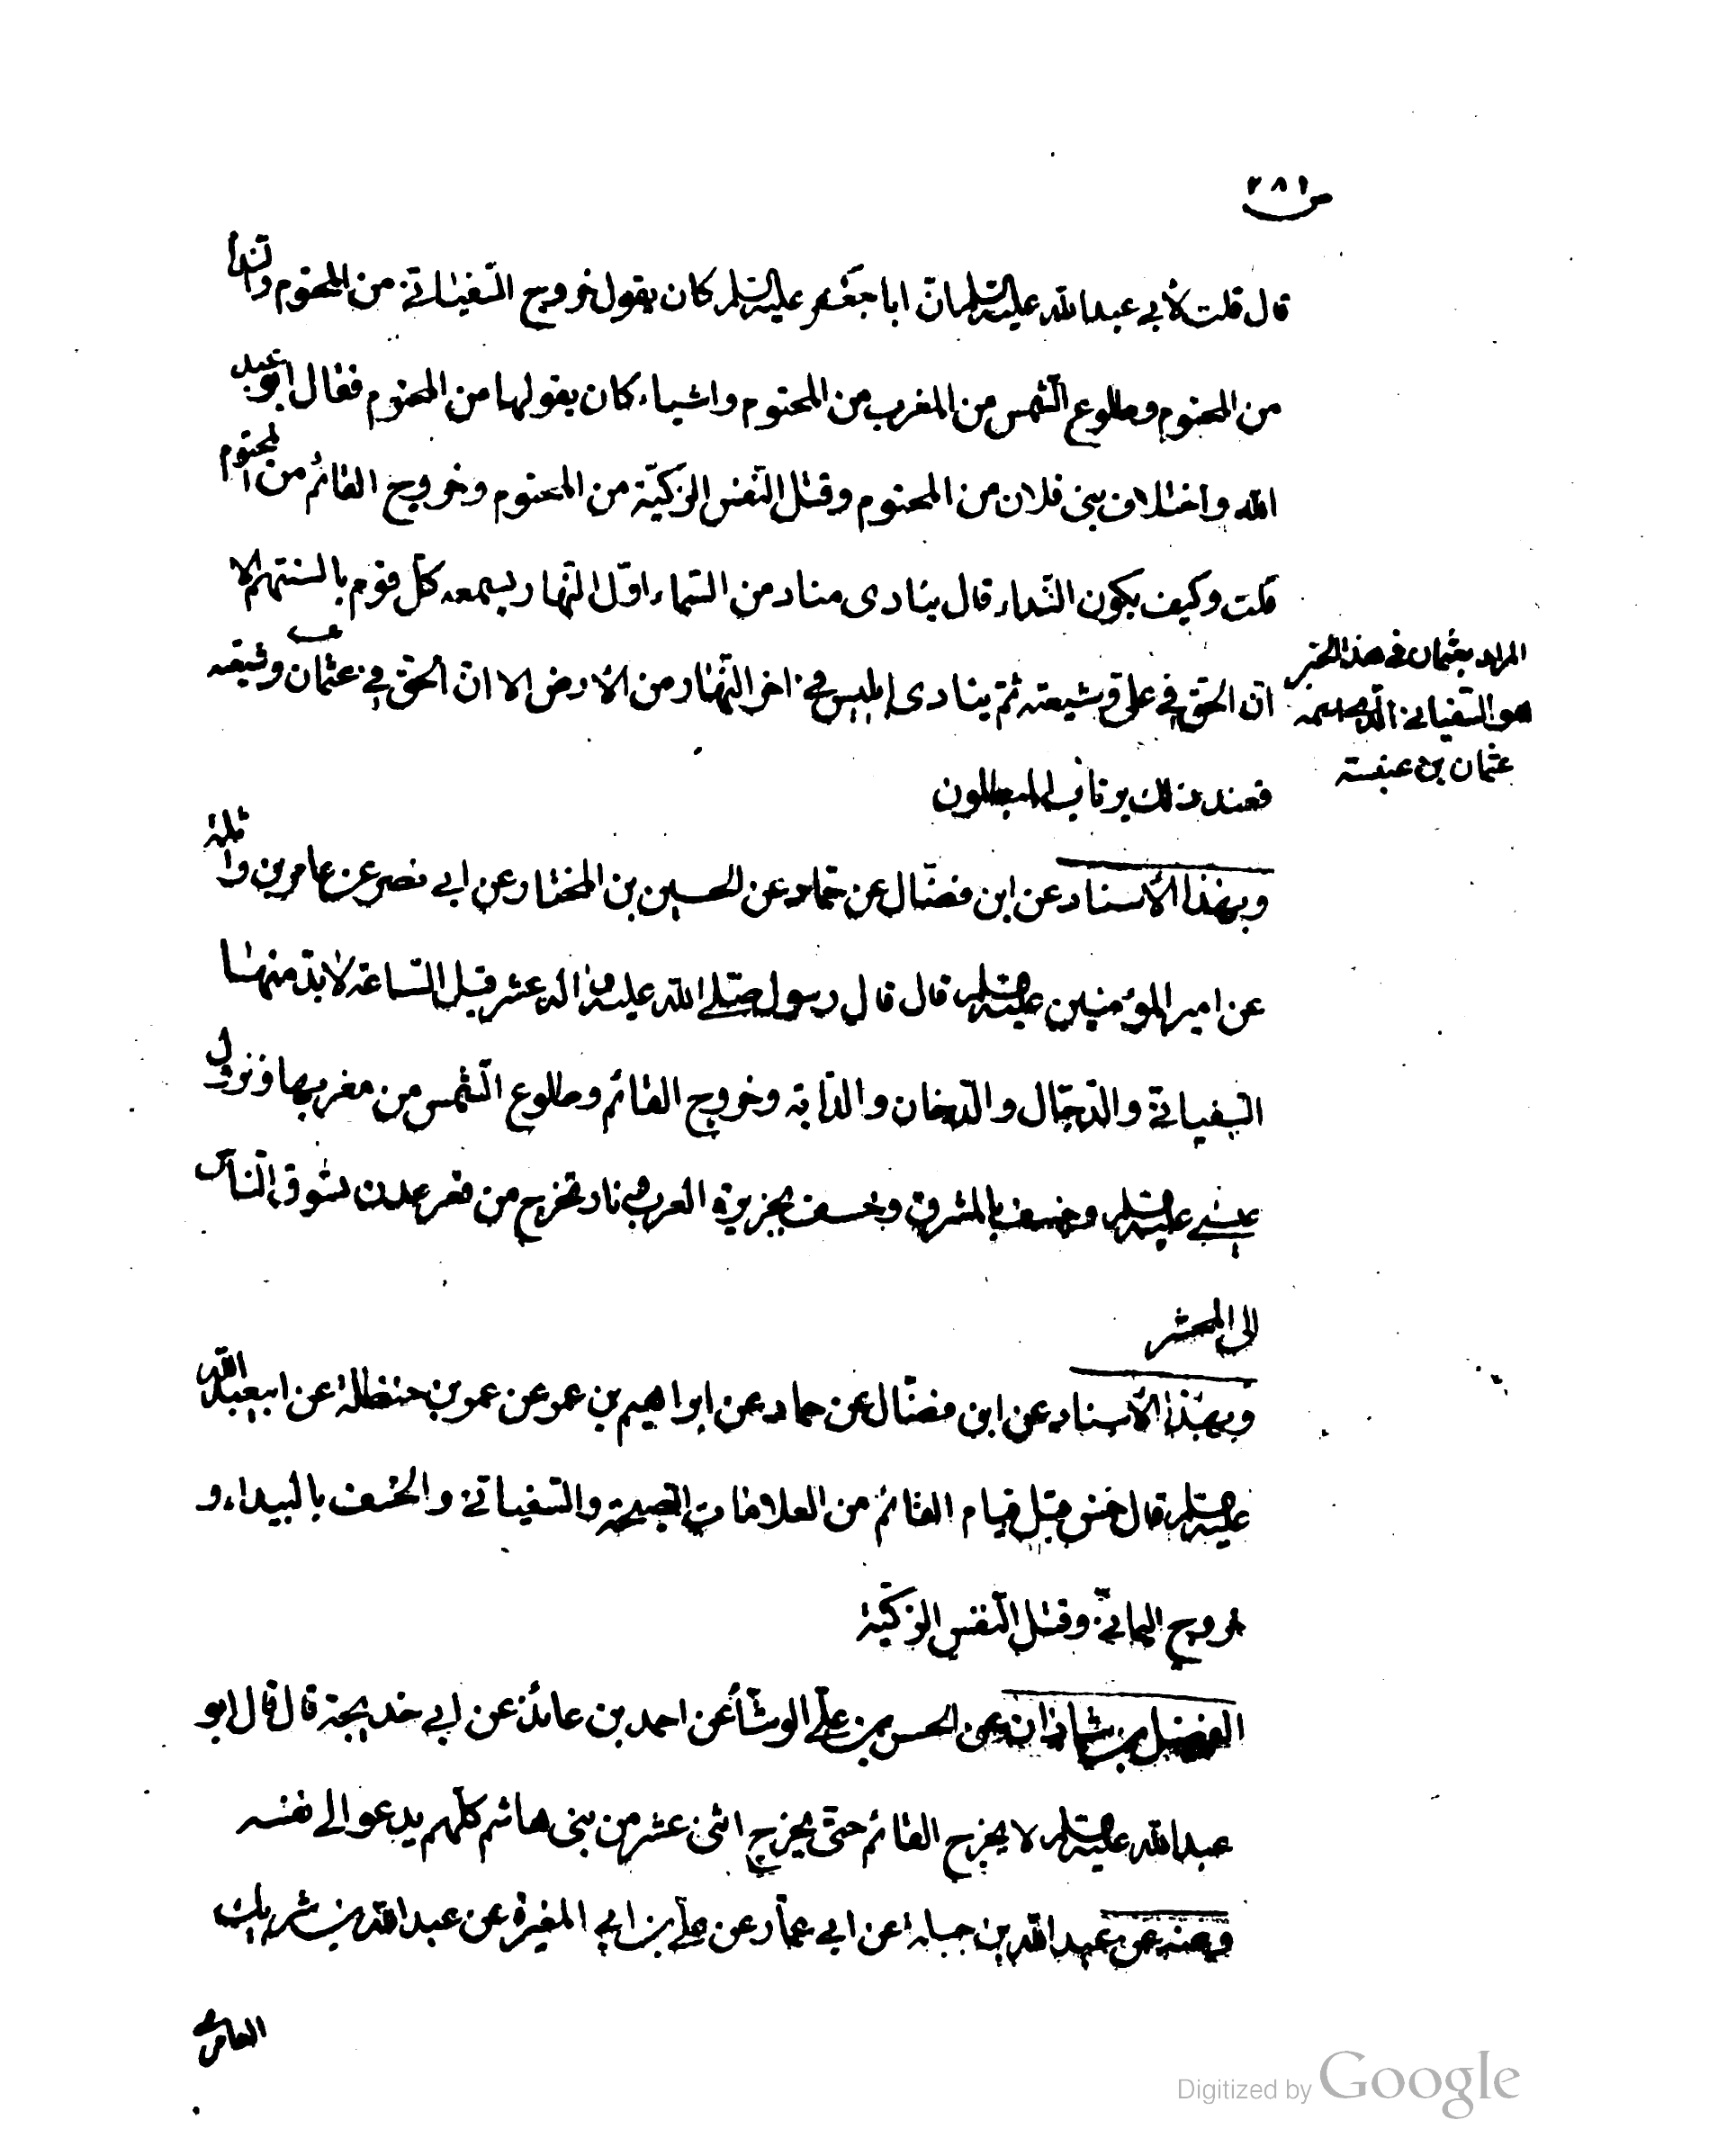 ص ٢٨١
قال قلت لأبي عبدالله عليه السلم ان ابا جعفر عليه السلم كان يقول خروج السفياني من المحتوم والندا
من المحتوم وطلوع الشمس من المغرب من المحتوم واشياء كان يقولها من المحتوم فقال ابو عبد
الله واختلاف بنى فلان من المحتوم وقتل النفس الزكيّة من المحتوم وخروج القائم من المحتوم
قلت وكيف يكون النداء قال ينادى مناد من السماء اوّل النهار يسمعه كلّ قوم بالسنتهم الا
انّ الحق في علىّ وشيعته ثمّ ينادى ابليس في اخر النهار من الأرض الا انّ الحق في عثمان وشيعته
فعند ذلك يرتاب المبطلون
المراد بعثمان في هذا الخبر
هو السفياني الذي اسمه
عثمان بن عنبسة
وبهذا الأسناد عن ابن فضّال عن حمّاد عن الحسين بن المختار عن ابي نصر عن عامر بن واثلة
عن امير المؤمنين عليه السلم قال قال رسول صلى الله عليه واله عشر قبل السّاعة لابدّ منها
السفياني والدّجّال والدّخان والدّابة وخروج القائم وطلوع الشّمس من مغربها ونزول
عيسى عليه السلم وخسف بالمشرق وخسف بجزيرة العرب ونار تخرج من قعر عدن تسوق النّاس
الى المحشر
وبهذا الأسناد عن ابن فضّال عن حماد عن ابراهيم بن عمر عن عمر بن حنظلة عن ابيعبد الله
عليه السلم قال خمس قبل قيام القائم من العلامات الصيحة والسّفياني والخسف بالبيداء و
خروج اليمانيّ وقتل النّفس الزكيّة
الفضل بن شاذان عن الحسن بن عليّ الوشّاء عن احمد بن عائذ عن ابي خديجة قال قال ابو
عبدالله عليه السلم لا يخرج القائم حتّى يخرج اثنى عشر من بنى هاشم كلّهم يدعو الى نفسه
وعنه عن عبد الله بن جبلة عن ابي عمّار عن عليّ بن ابي المغيرة عن عبد الله بن شريك
العامري
Digitized by Google